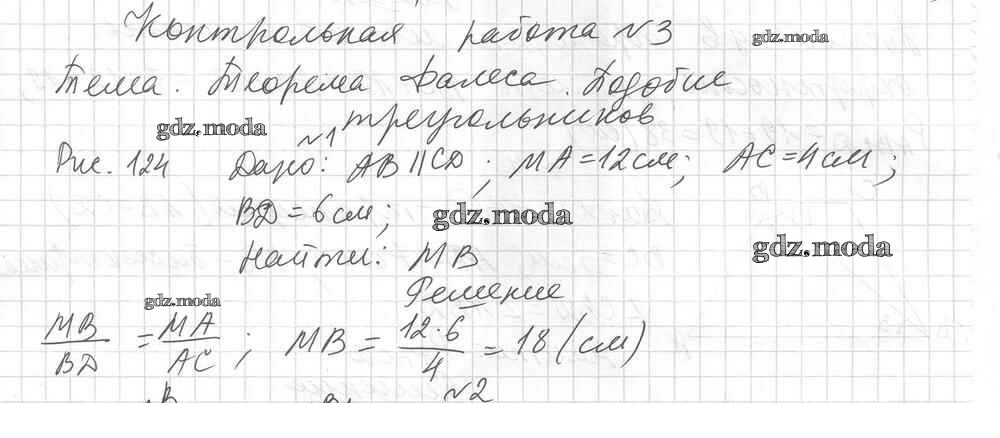 Контрольная работа №3
gdz.moda
Тема. Теорема Фалеса. Подобие
треугольников
gdz.moda
№1
Рис. 124 Дано: AB || CD; MA = 12 см; AC = 4 см;
BD = 6 см;
gdz.moda
Найти: MB
gdz.moda
Решение
gdz.moda
MB/BD = MA/AC; MB = 12·6/4 = 18 (см)
№2